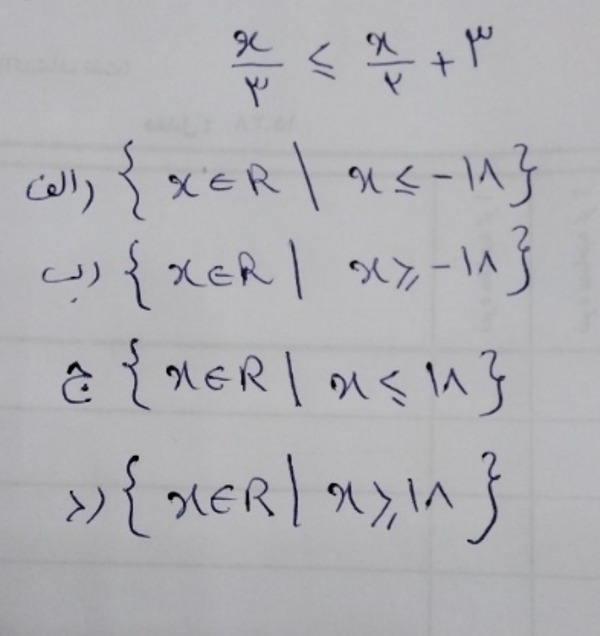 x/۳ ≤ x/۲ + ۳
الف) { x ∈ R | x ≤ -۱۸ }
ب) { x ∈ R | x ≥ -۱۸ }
ج { x ∈ R | x ≤ ۱۸ }
د) { x ∈ R | x ≥ ۱۸ }